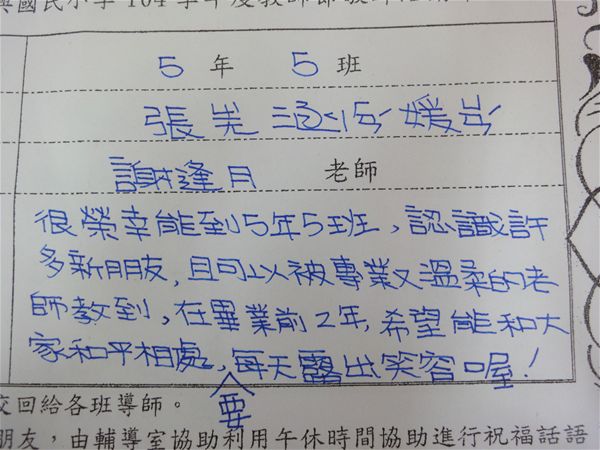 國民小學104學年度教師節敬師活動
5年5班
張羌涵
謝逢月 老師
很榮幸能到5年5班，認識許
多新朋友，且可以被專業又溫柔的老
師教到，在畢業前2年，希望能和大
家和平相處，要每天露出笑容喔！
交回給各班導師。
朋友，由輔導室協助利用午休時間協助進行祝福話語